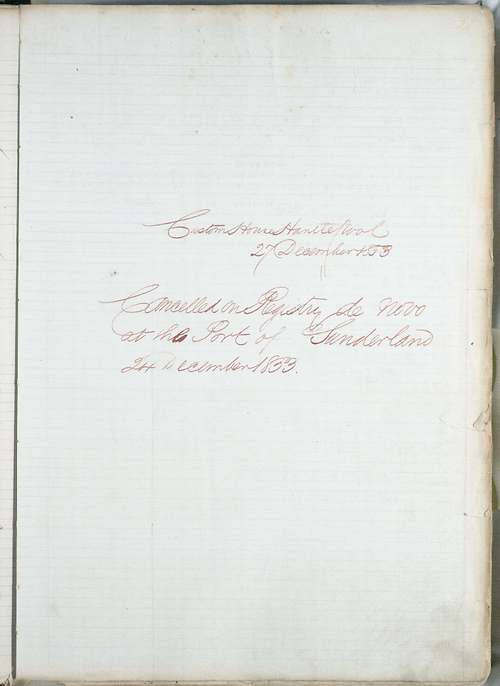 Custom House Hartlepool
27 December 1853
Cancelled on Registry de novo
at the Port of Sunderland
24 December 1853.